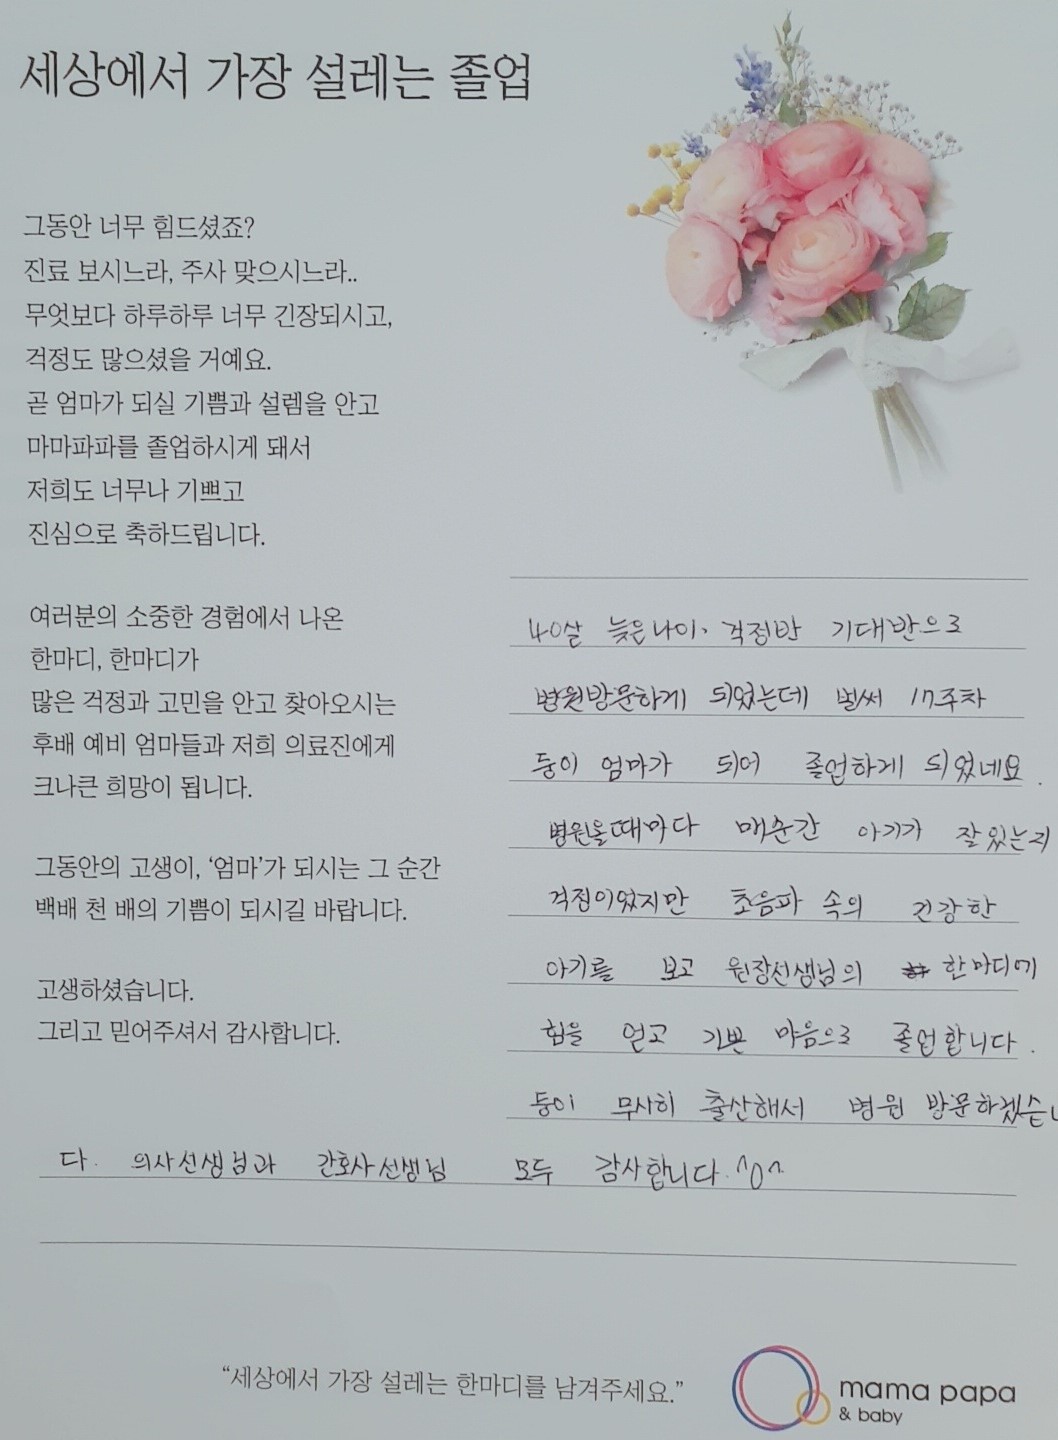 세상에서 가장 설레는 졸업
그동안 너무 힘드셨죠?
진료 보시느라, 주사 맞으시느라..
무엇보다 하루하루 너무 긴장되시고,
걱정도 많으셨을 거예요.
곧 엄마가 되실 기쁨과 설렘을 안고
마마파파를 졸업하시게 돼서
저희도 너무나 기쁘고
진심으로 축하드립니다.
여러분의 소중한 경험에서 나온
한마디, 한마디가
많은 걱정과 고민을 안고 찾아오시는
후배 예비 엄마들과 저희 의료진에게
크나큰 희망이 됩니다.
그동안의 고생이, ‘엄마’가 되시는 그 순간
백배 천 배의 기쁨이 되시길 바랍니다.
고생하셨습니다.
그리고 믿어주셔서 감사합니다.
40살 늦은나이, 걱정반 기대반으로
병원방문하게 되었는데 벌써 17주차
둥이 엄마가 되어 졸업하게 되었네요.
병원올때마다 매순간 아기가 잘있는지
걱정이었지만 초음파 속의 건강한
아기를 보고 원장선생님의 한마디에
힘을 얻고 기쁜 마음으로 졸업합니다.
둥이 무사히 출산해서 병원 방문하겠습니
다. 의사선생님과 간호사선생님 모두 감사합니다.^0^
“세상에서 가장 설레는 한마디를 남겨주세요.”
mama papa
& baby